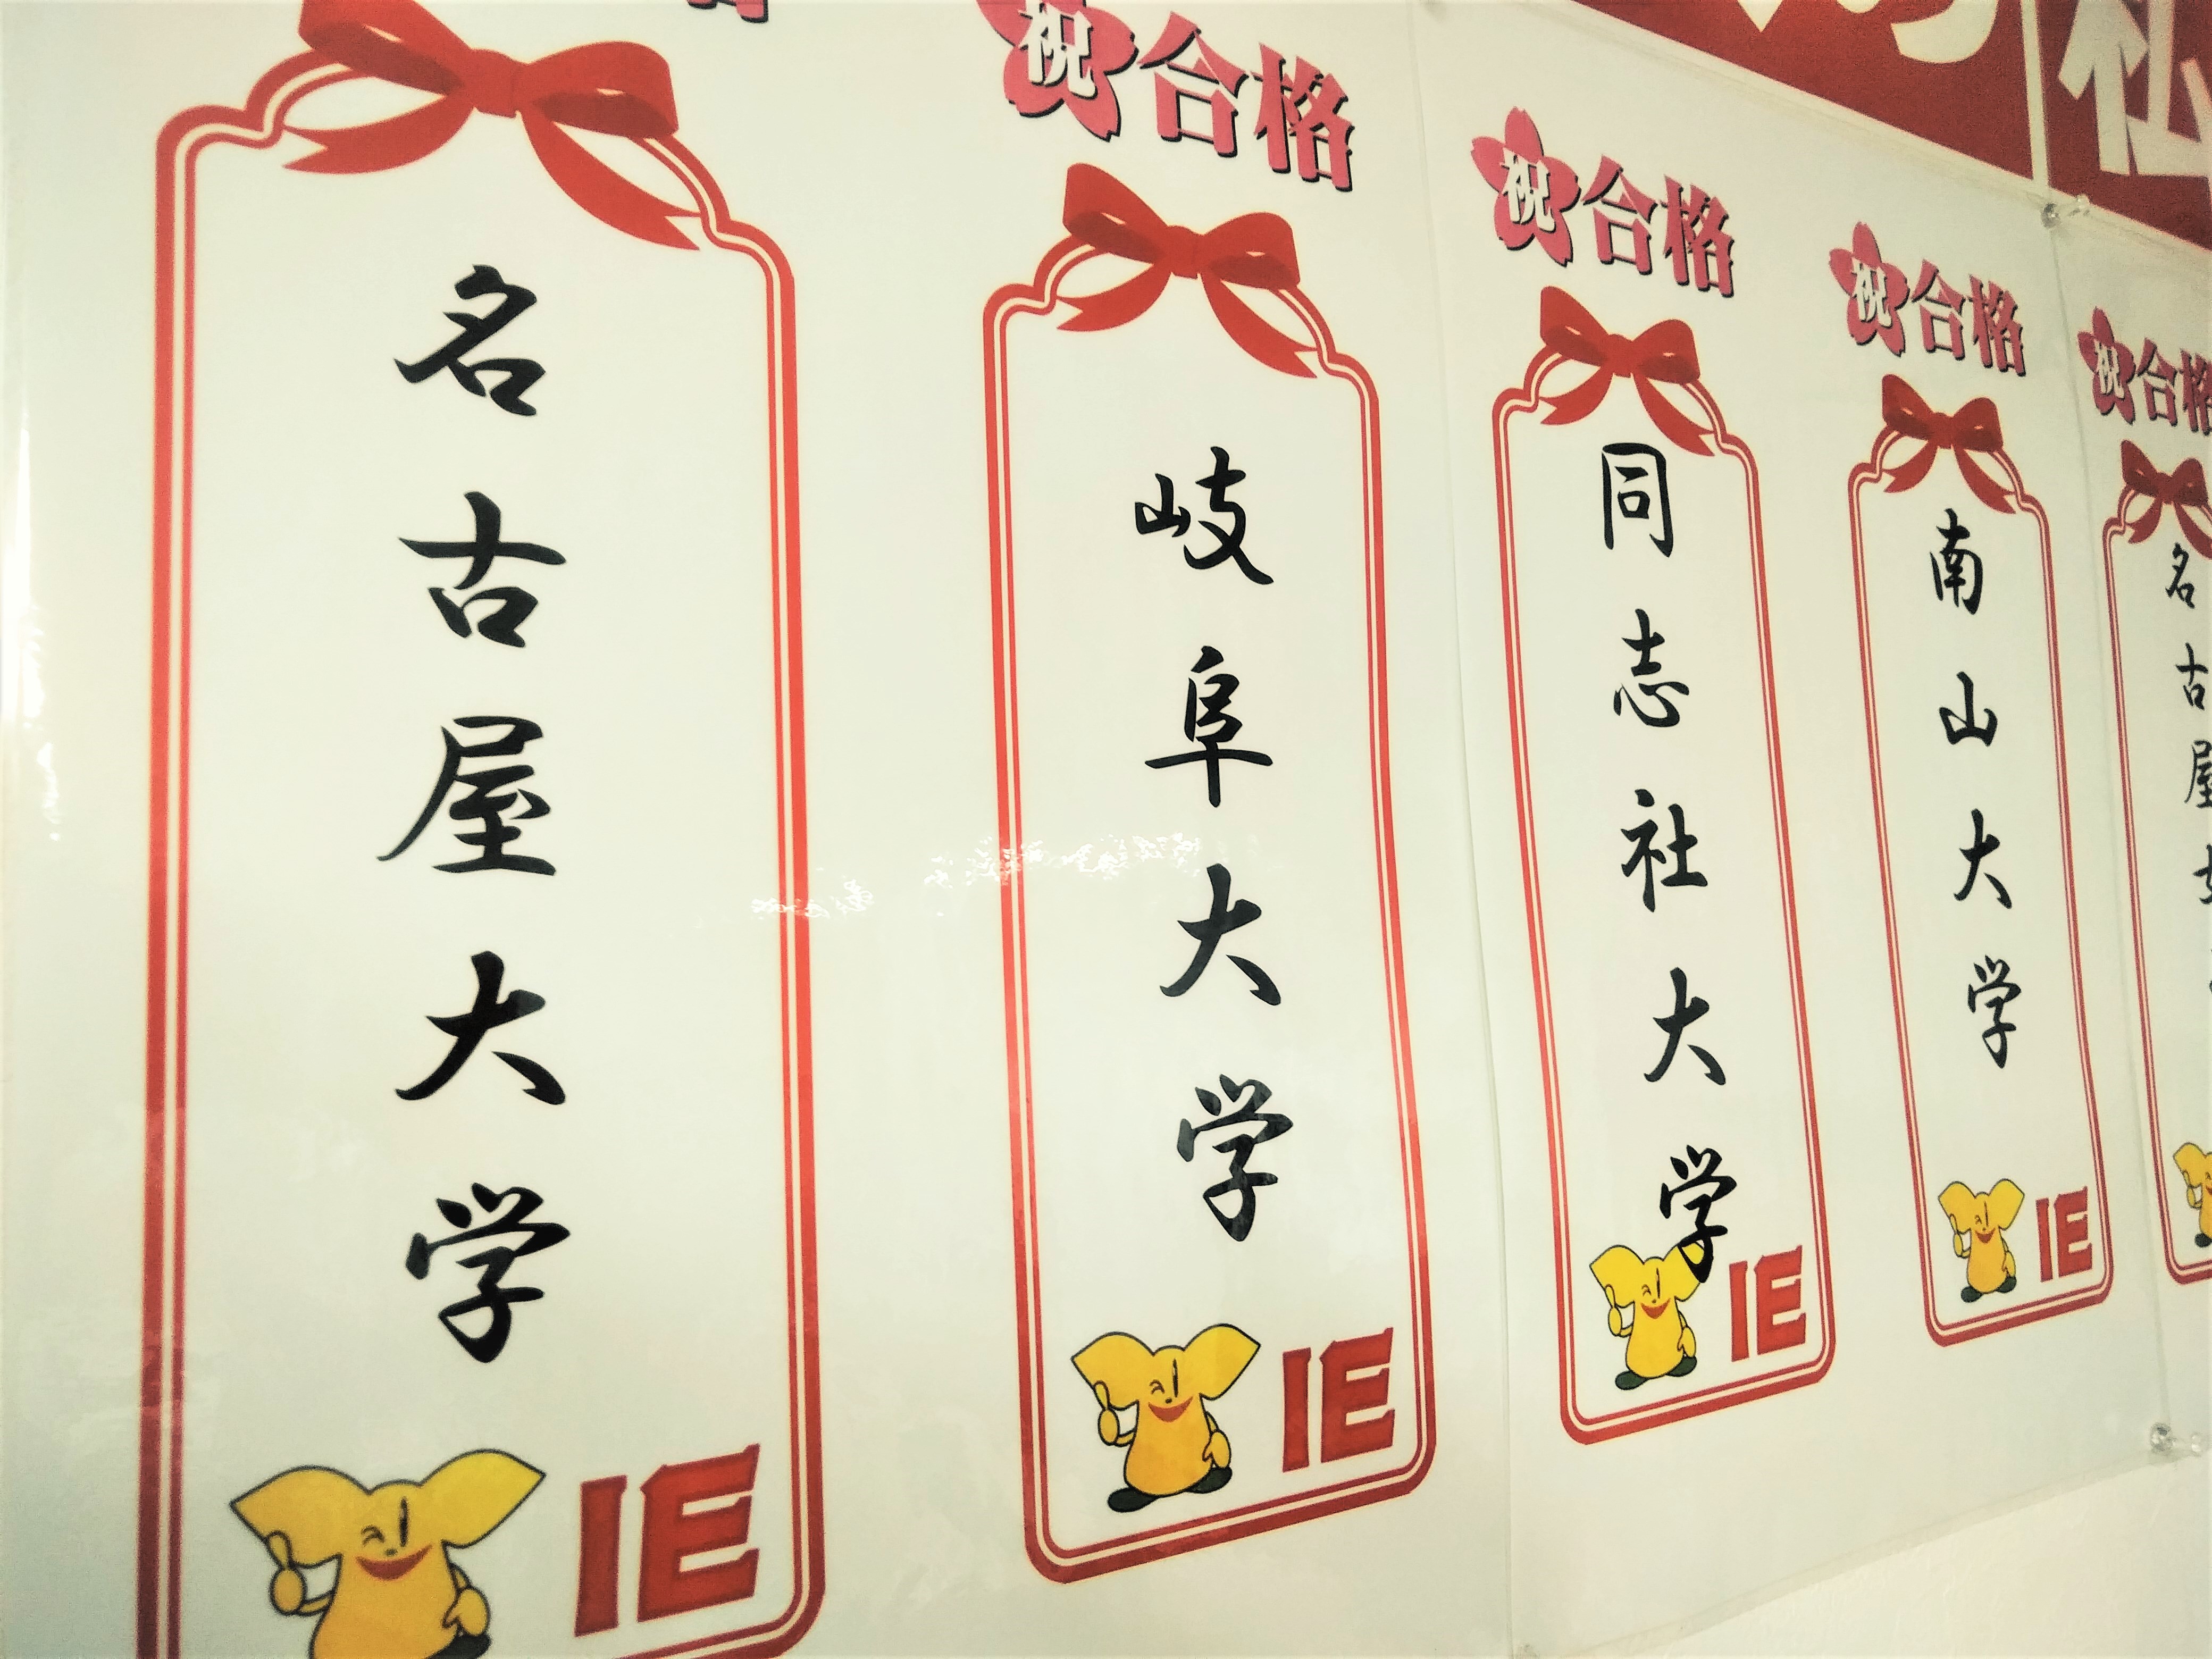 名古屋大学
IE
祝合格
岐阜大学
IE
祝合格
同志社大学
IE
祝合格
南山大学
IE
祝合格
名古屋